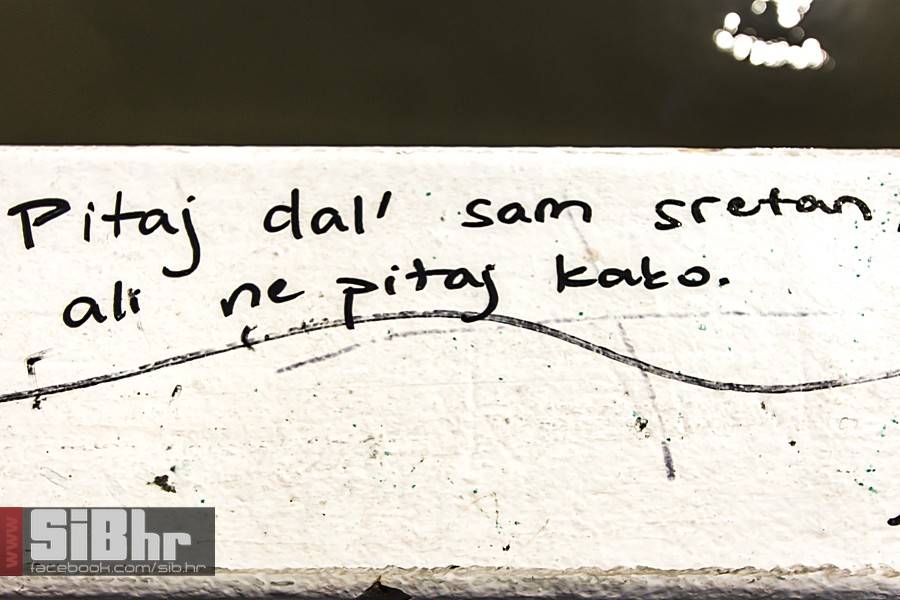 Pitaj dal' sam sretan,
ali ne pitaj kako.
www SiBhr
facebook.com/sib.hr